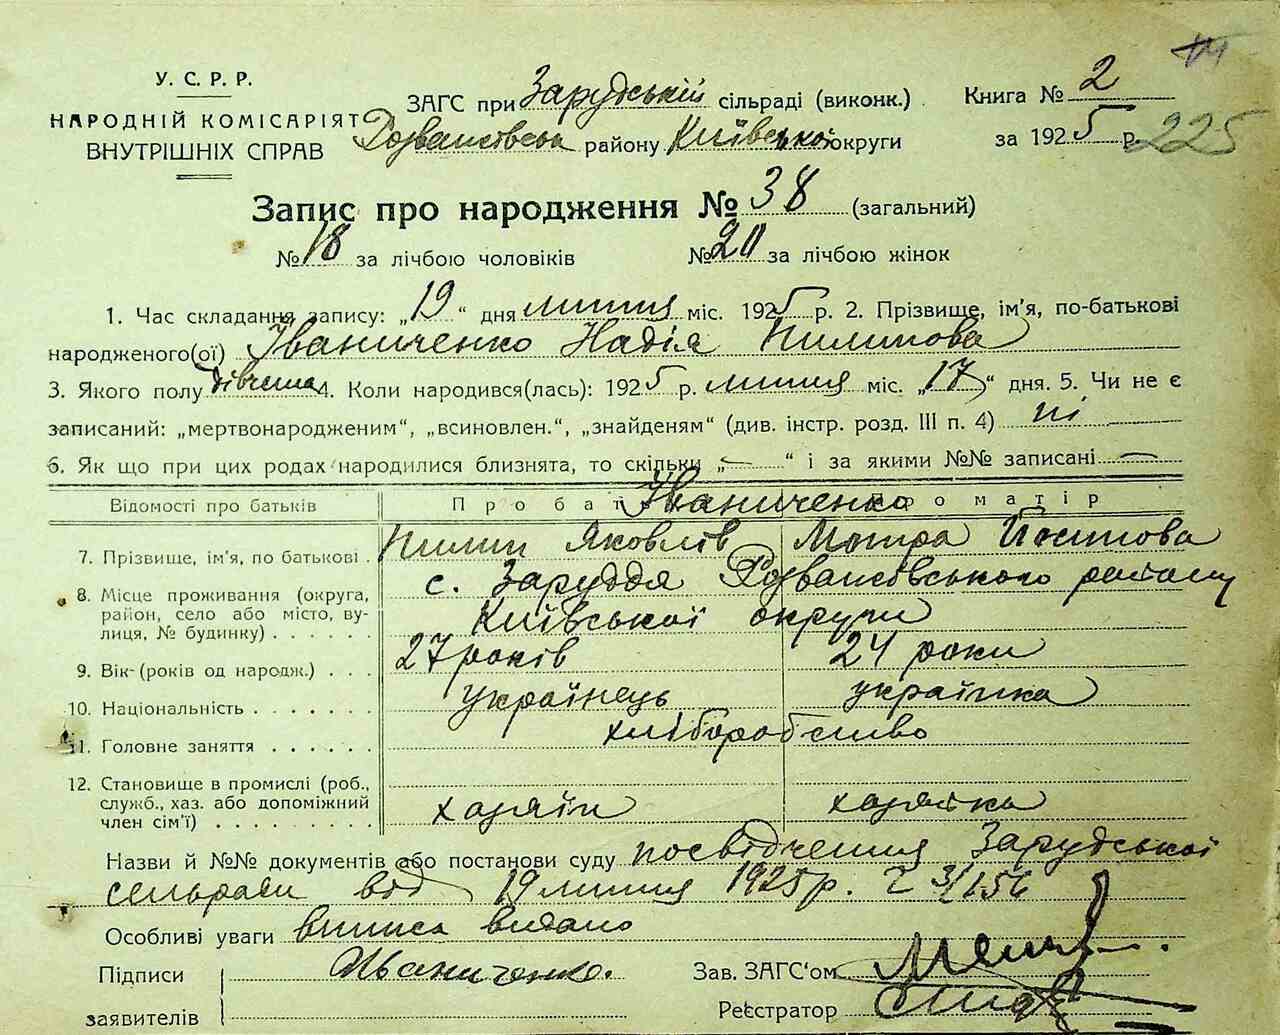 У. С. Р. Р.
НАРОДНІЙ КОМІСАРІЯТ
ВНУТРІШНІХ СПРАВ
ЗАГС при Зарудській сільраді (виконк.)
Розваженська району Київської округи
Книга № 2
за 1925 р. 225
Запис про народження № 38 (загальний)
№ 18 за лічбою чоловіків № 20 за лічбою жінок
1. Час складання запису: „19“ дня липня міс. 1925 р. 2. Прізвище, ім'я, по-батькові
народженого(ої) Іваниченко Надія Пилипова
3. Якого полу дівчина 4. Коли народився(лась): 1925 р. липня міс. „17“ дня. 5. Чи не є
записаний: „мертвонародженим“, „всиновлен.“, „знайденям“ (див. інстр. розд. III п. 4) ні
6. Як що при цих родах народилися близнята, то скільки „—“ і за якими №№ записані —
Відомості про батьків Про батька Про матір
Іваниченко
7. Прізвище, ім'я, по батькові . Пилип Яковлів Мотра Йосипова
8. Місце проживання (округа, район, село або місто, вулиця, № будинку) . . . . . с. Заруддя Розважівського району
Київської округи
9. Вік (років од народж.) . . . 27 років 24 роки
10. Національність . . . . . . . українець українка
11. Головне заняття . . . . . . хліборобство
12. Становище в промислі (роб.,
служб., хаз. або допоміжний
член сім'ї) . . . . . . . . . хазяїн хазяйка
Назви й №№ документів або постанови суду посвідчення Зарудської
сельради від 19 липня 1925 р.
Особливі уваги випись видано
Підписи
заявителів
Іваниченко.
Зав. ЗАГС'ом
Реєстратор